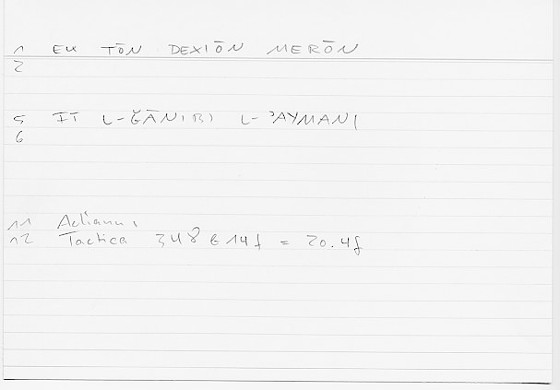 1 EK TŌN DEXIŌN MERŌN
2
5 IT L-ǦĀNIBI L-ʾAYMANI
6
11 Aelianus
12 Tactica 348 e 14f = 20.4f